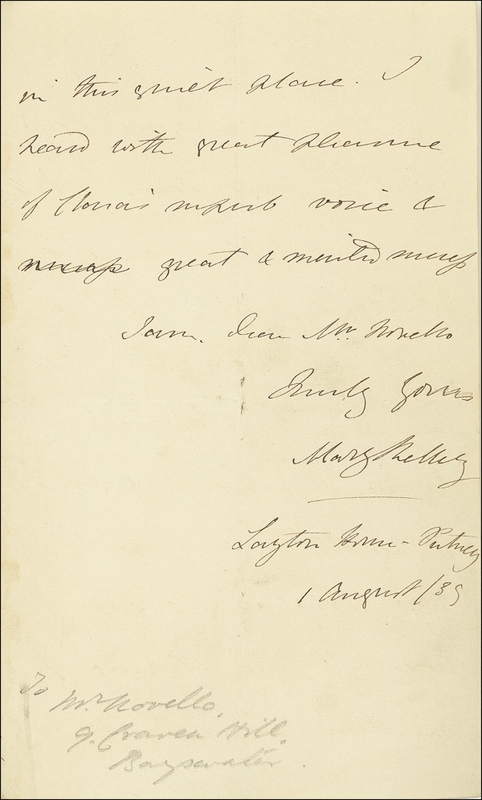 in this quiet place. I
heard with great pleasure
of Clara's superb voice &
success great & merited success
I am. dear Mr. Novello
Truly Yours
Mary Shelley
Layton House - Putney
1 August /39
To
Mr. Novello.
9. Craven Hill.
Bayswater.